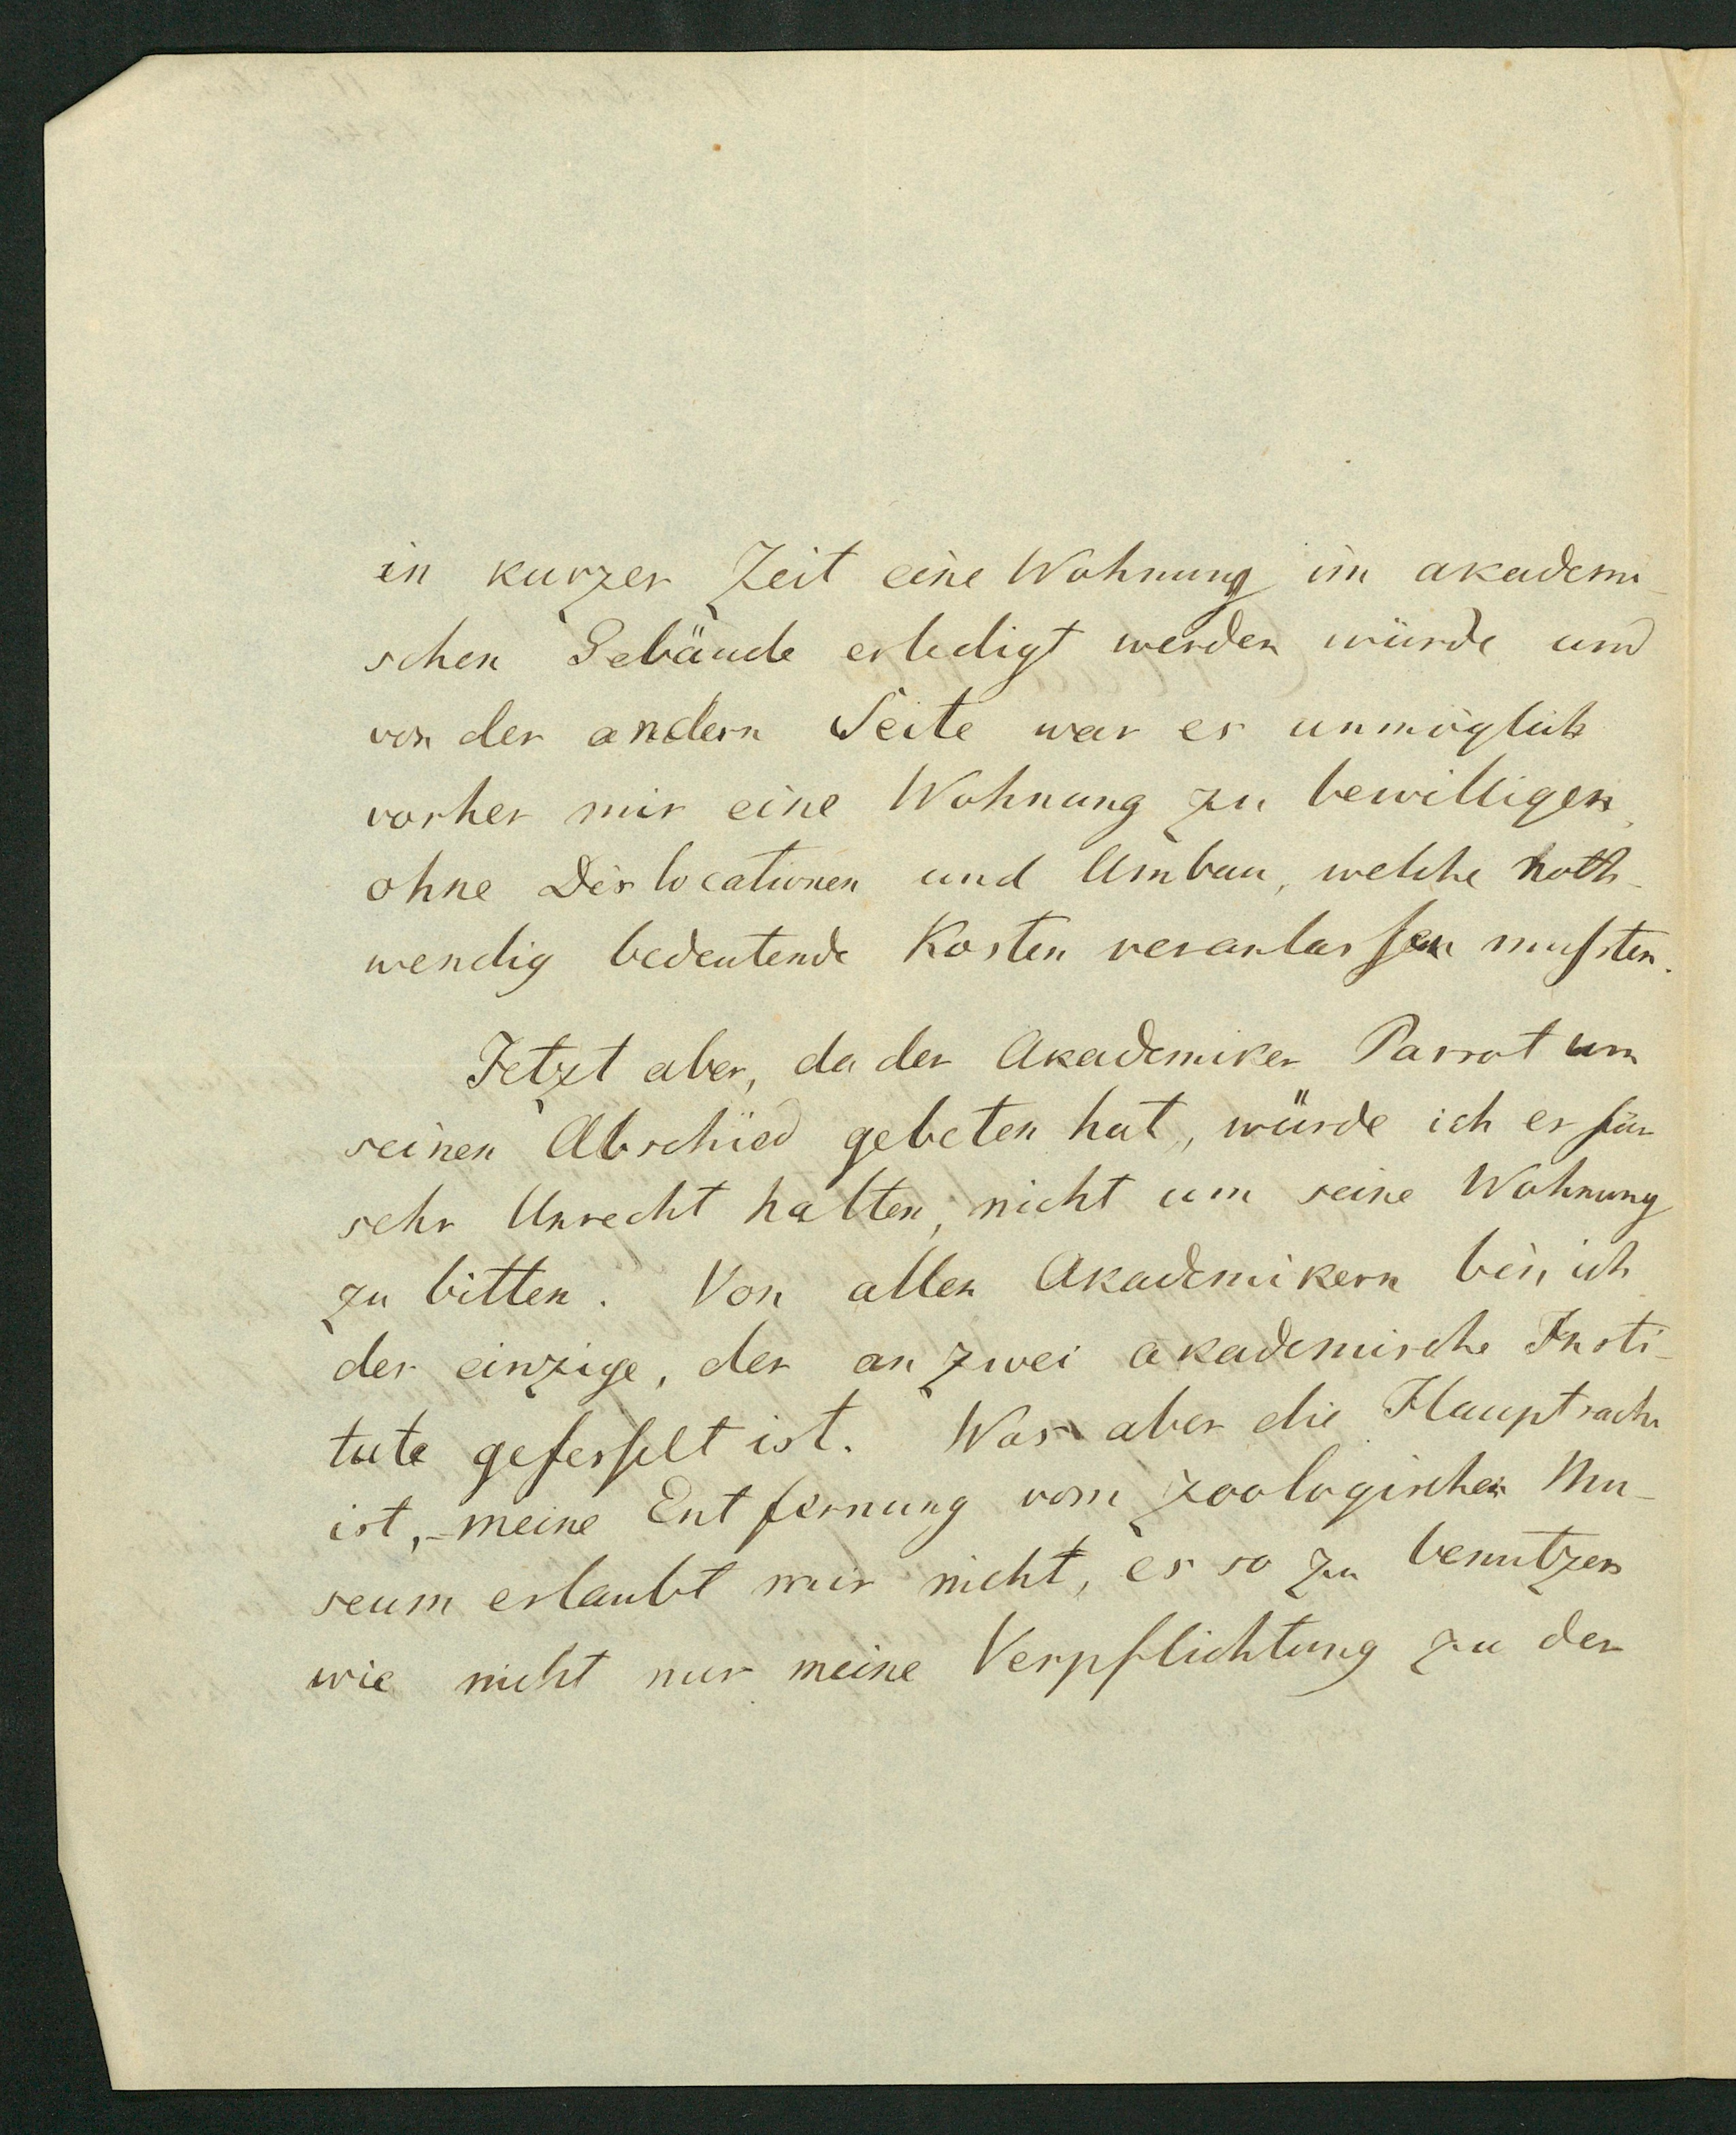 in kurzer Zeit eine Wohnung im akademi-
schen Gebäude erledigt werden würde und
von der andern Seite war es unmöglich
vorher mir eine Wohnung zu bewilligen,
ohne Dislocationen und Umbau, welche noth-
wendig bedeutende Kosten veranlassen mussten.
Jetzt aber, da der Akademiker Parrot um
seinen Abschied gebeten hat, würde ich es für
sehr Unrecht halten, nicht um seine Wohnung
zu bitten. Von allen Akademikern bin ich
der einzige, der an zwei akademische Insti-
tute gefesselt ist. Was aber die Hauptsache
ist, - meine Entfernung vom zoologischen Mu-
seum erlaubt mir nicht, es so zu benutzen
wie nicht nur meine Verpflichtung zu der